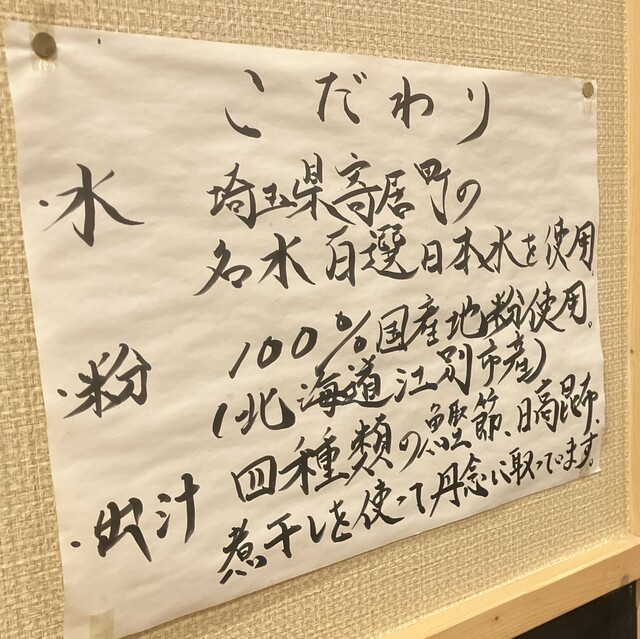 こだわり
・水 埼玉県寄居町の
名水百選日本水を使用
・粉 100%国産地粉使用。
(北海道江別市産)
・出汁 四種類の鰹節、日高昆布、
煮干しを使って丹念に取ってます。